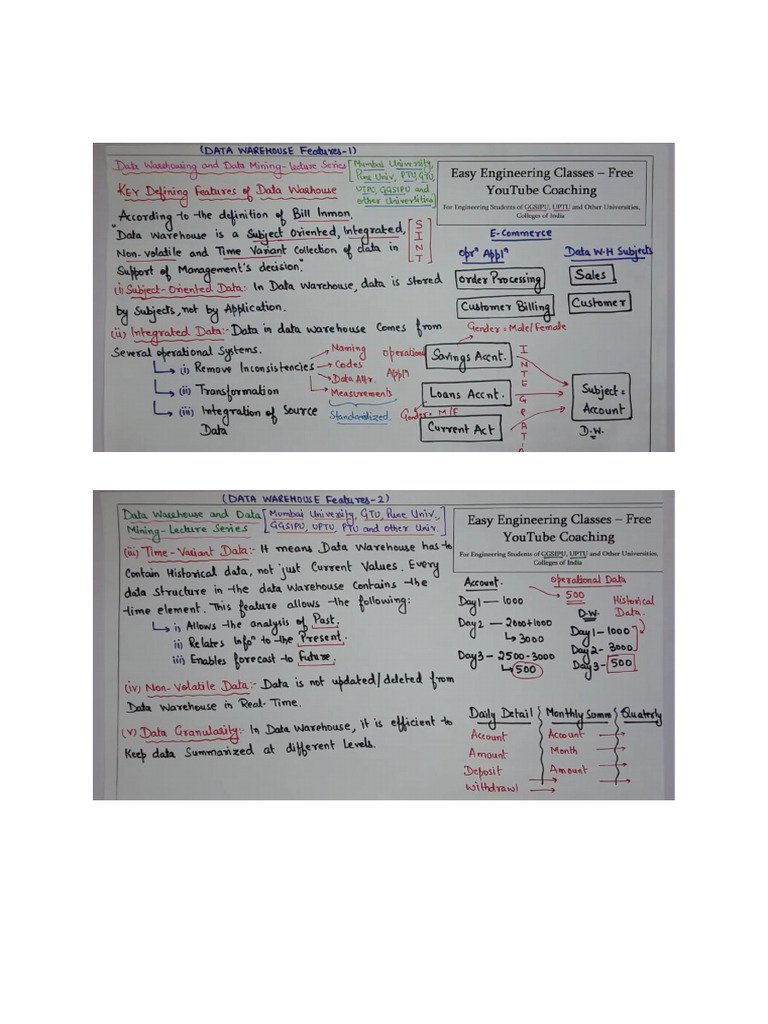 (DATA WAREHOUSE Features-1)
Data Warehousing and Data Mining-Lecture Series
[Mumbai University,
Pune Univ, PTU, GTU,
UTPU, GGSIPU and
other Universities]
KEY Defining Features of Data Warehouse
According to the definition of Bill Inmon.
"Data Warehouse is a Subject Oriented, Integrated,
Non-volatile and Time Variant Collection of data in
Support of Management's decision."
[S
I
N
T]
(i) Subject-Oriented Data:- In Data Warehouse, data is stored
by Subjects, not by Application.
(ii) Integrated Data:- Data in data warehouse comes from
Several operational Systems.
(i) Remove Inconsistencies
(ii) Transformation
(iii) Integration of Source
Data
Naming
Codes
Data Attr.
Measurements
Standardized
Easy Engineering Classes – Free
YouTube Coaching
For Engineering Students of GGSIPU, UPTU and Other Universities,
Colleges of India
E-Commerce
oprn Appln
Data W-H Subjects
Order Processing
Sales
Customer Billing
Customer
Gender = Male/Female
operational
Appln
Savings Accnt.
Loans Accnt.
Gender = M/F
Current Act
I
N
T
E
G
R
A
T
Subject =
Account
D.W.
(DATA WAREHOUSE Features-2)
Data Warehouse and Data
Mining-Lecture Series
[Mumbai University, GTU, Pune Univ.,
GGSIPU, UPTU, PTU and other Univ.]
(iii) Time-Variant Data:- It means Data Warehouse has to
Contain Historical data, not just Current Values. Every
data structure in the data Warehouse contains the
time element. This feature allows the following:
i) Allows the analysis of Past.
ii) Relates Infon to the Present.
iii) Enables forecast to Future.
(iv) Non-Volatile Data:- Data is not updated/deleted from
Data Warehouse in Real-Time.
(v) Data Granularity:- In Data Warehouse, it is efficient to
Keep data Summarized at different levels.
Easy Engineering Classes – Free
YouTube Coaching
For Engineering Students of GGSIPU, UPTU and Other Universities,
Colleges of India
Account.
Day1 — 1000
Day2 — 2000+1000
3000
Day3 - 2500-3000
500
operational Data
500
D.W.
Historical
Data.
Day1-1000
Day2-3000
Day3-500
Daily Detail
Account
Amount
Deposit
Withdrawl
Monthly Summ
Account
Month
Amount
Quaterly